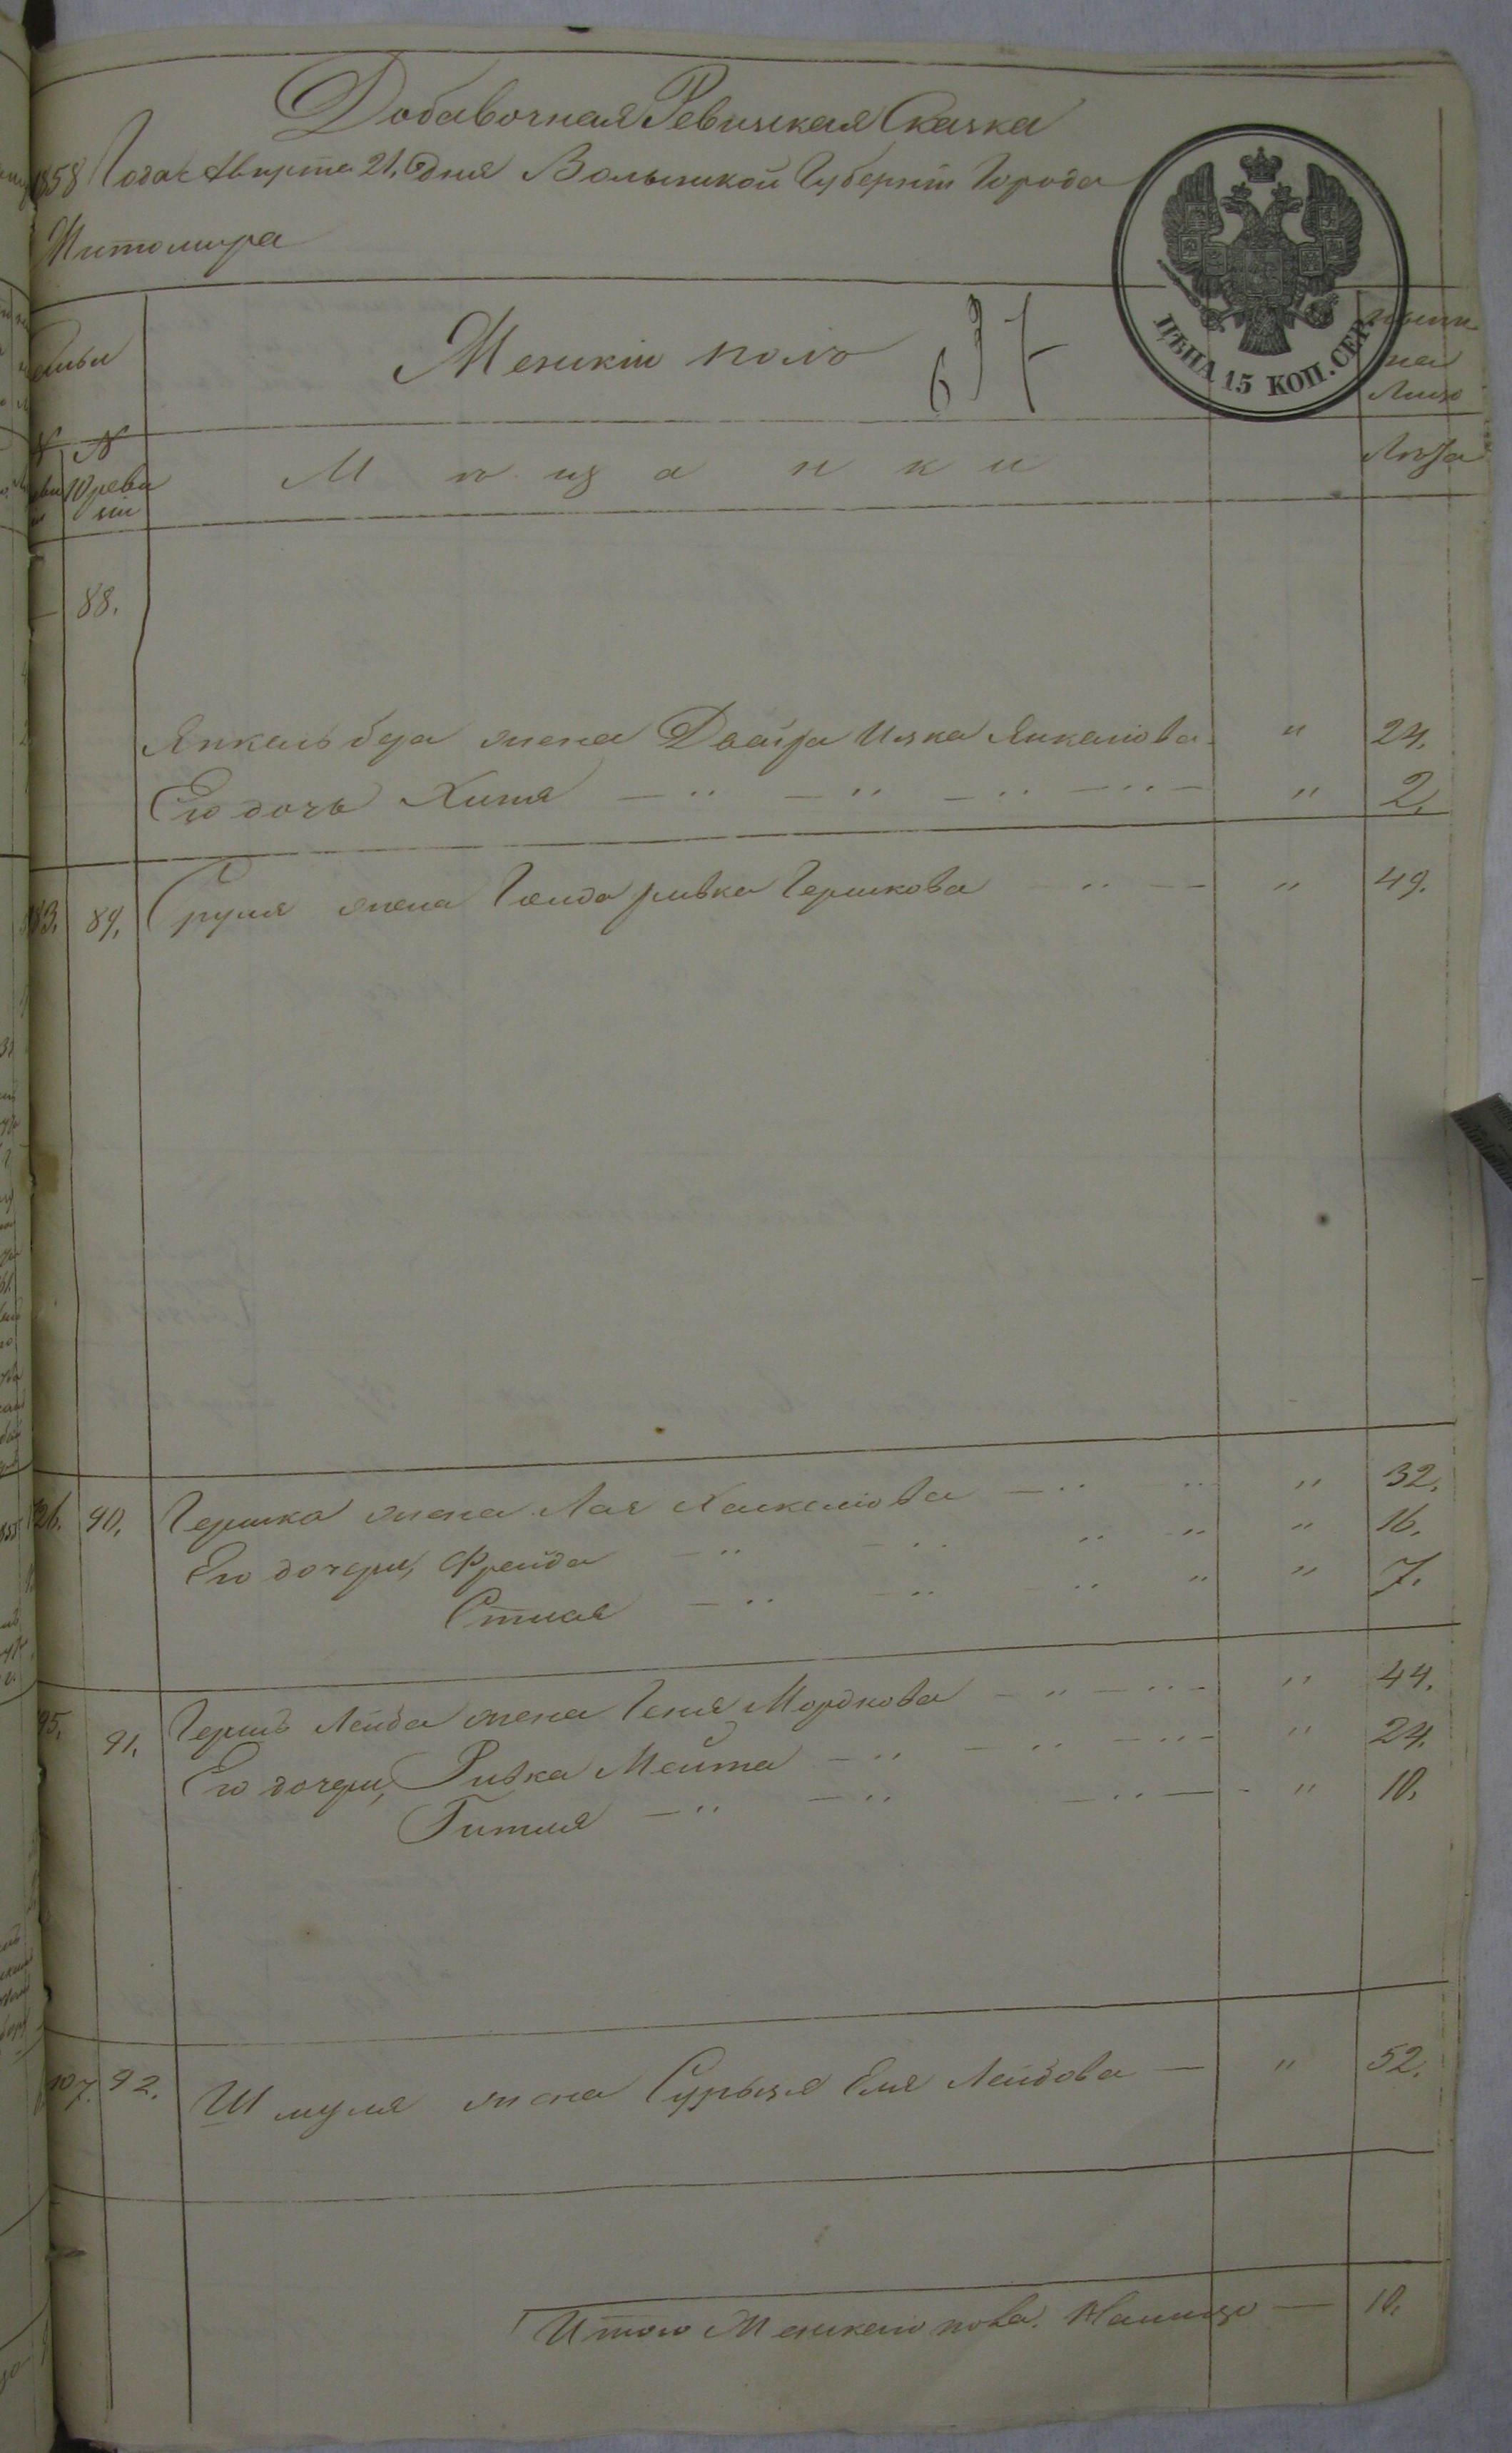 Добавочная Ревизская Сказка
1858 Года Августа 21. дня Волынской Губернiи Города
Житомира
ЦѢНА 15 КОП. СЕР.
Женскiй полъ
637
на
Лицо
М ѣ щ а н к и
Лѣта
№ №
10 реви
зiи
88.
Янкель бера жена Двойра Ички Янкелiова " 24.
Его дочь Хина " 2.
89. Сруля жена Генда ривка Гершкова " 49.
90. Гершка жена Лая Хаскелiова " 32.
Его дочери, Фрейда " 16.
Стися " 7.
95. 91. Гершъ Лейба жена Геня Мордкова " 44.
Его дочери, Ривка Мейта " 24.
Гитля " 10.
107. 92. Шмуля жена Сурызя Еля Лейбова " 52.
Итого Женскаго пола На лицо 10.